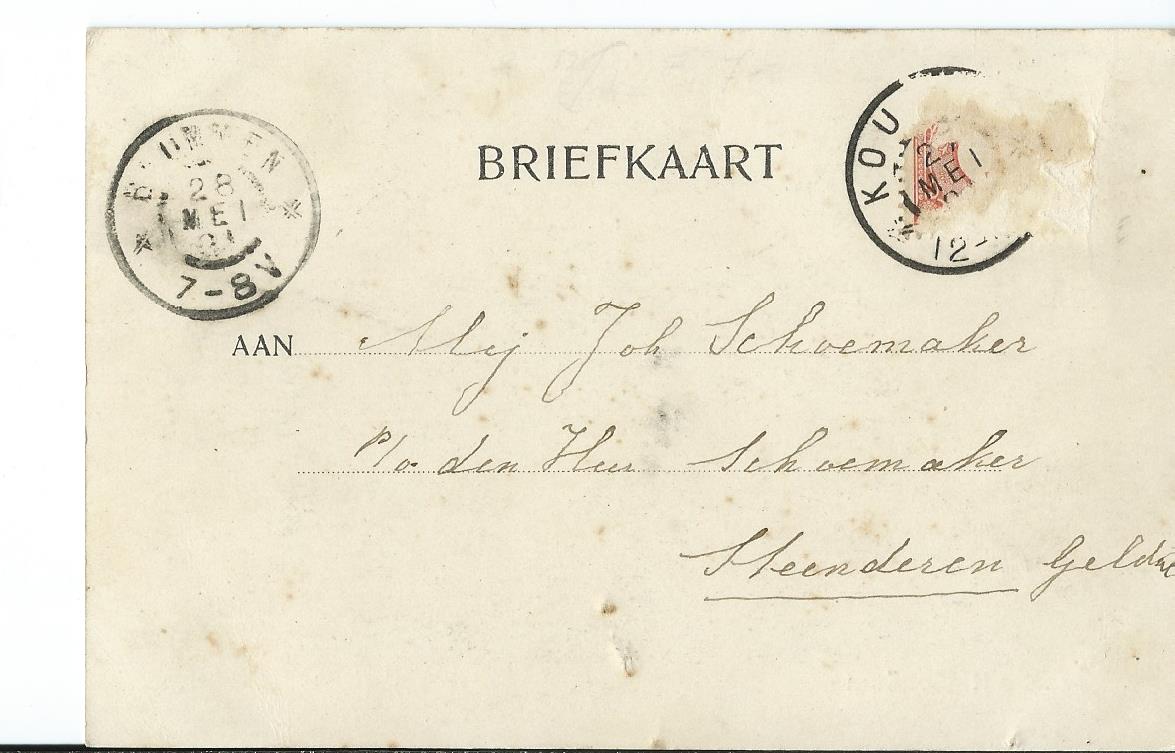 BRIEFKAART
BRUMMEN
28
MEI
01
7-8V
KOU
27
MEI
12-
AAN Mej Joh Schoemaker
P/o den Heer Schoemaker
Steenderen Gelderl